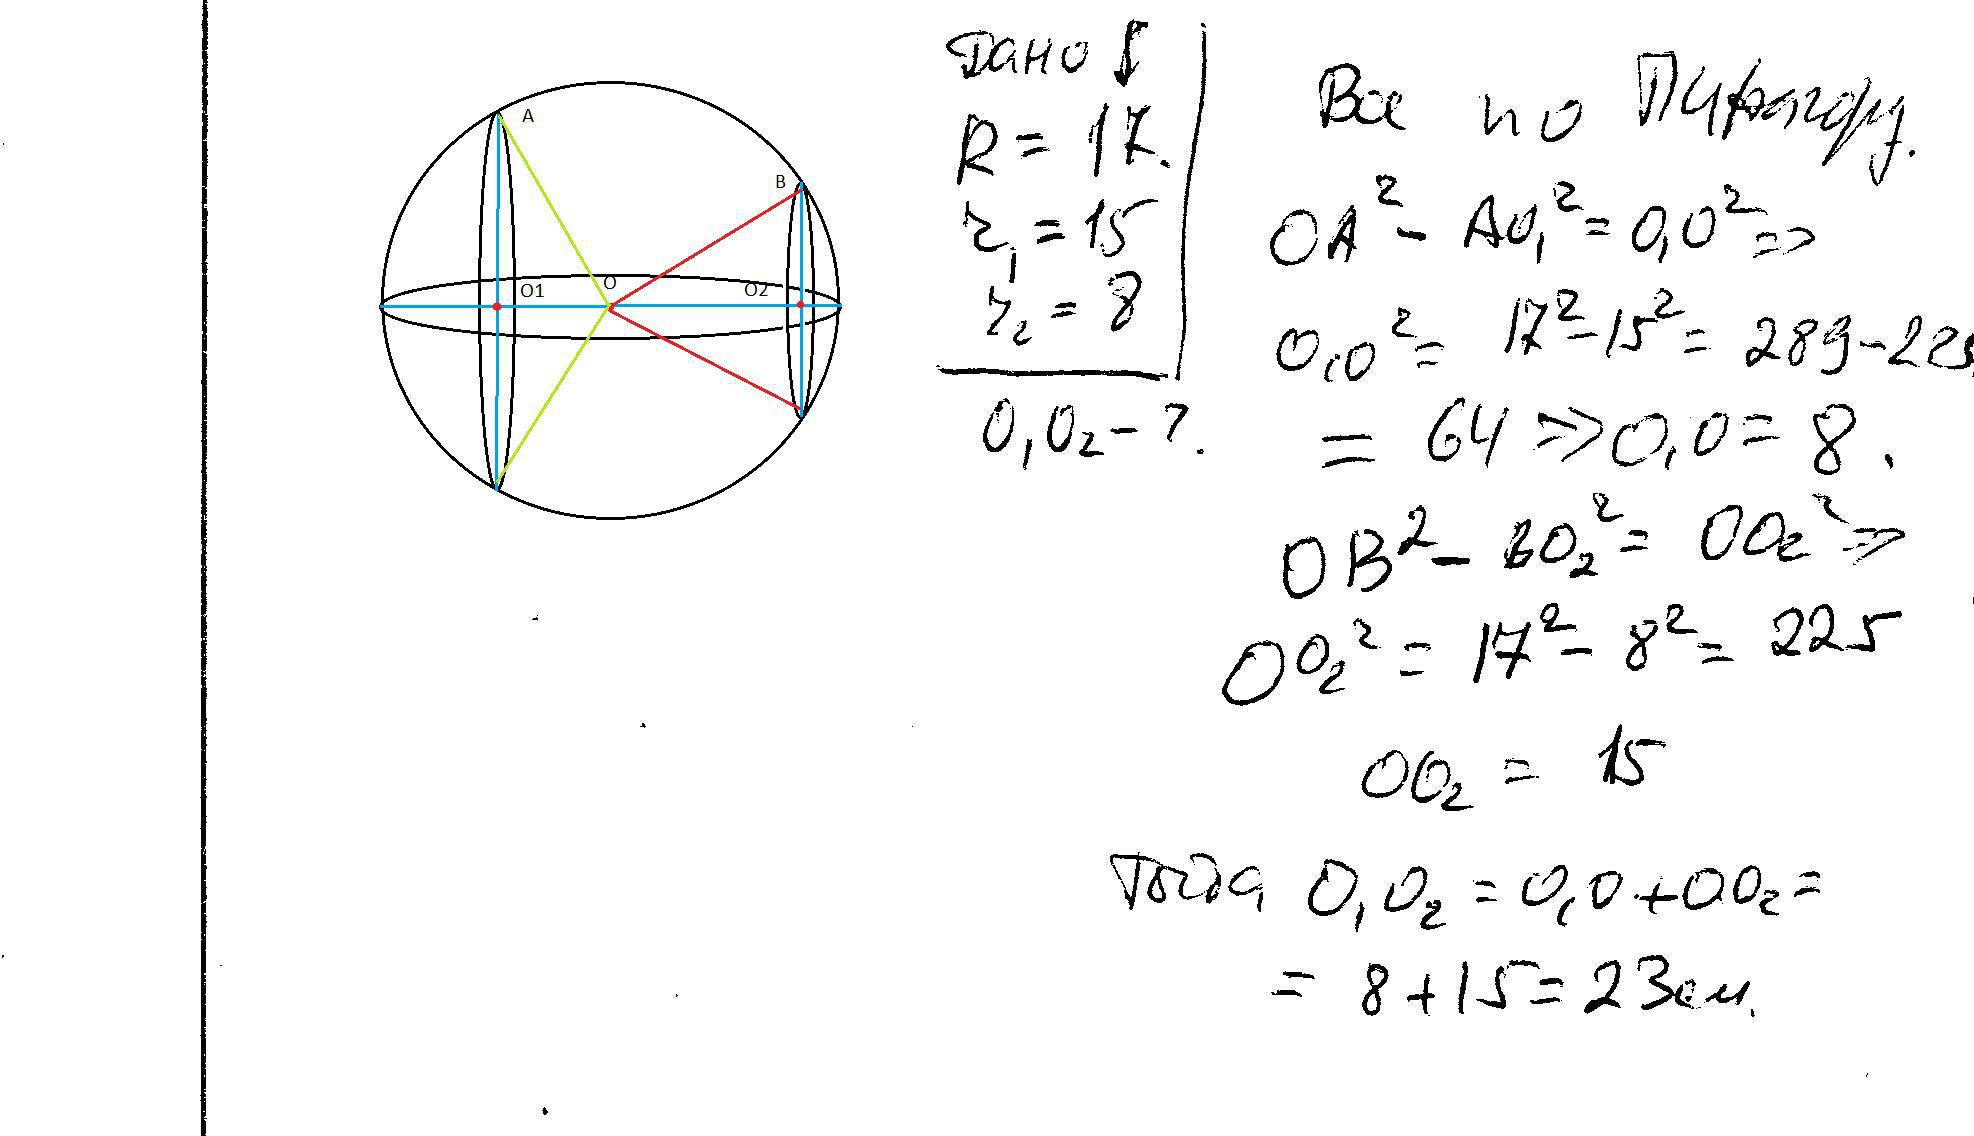 A
B
O
O1
O2
Дано:
R = 17.
r₁ = 15
r₂ = 8
O₁O₂ - ?
Все по Пифагору.
OA² - AO₁² = O₁O² =>
O₁O² = 17² - 15² = 289 - 225
= 64 => O₁O = 8.
OB² - BO₂² = OO₂² =>
OO₂² = 17² - 8² = 225
OO₂ = 15
Тогда O₁O₂ = O₁O + OO₂ =
= 8 + 15 = 23 см.